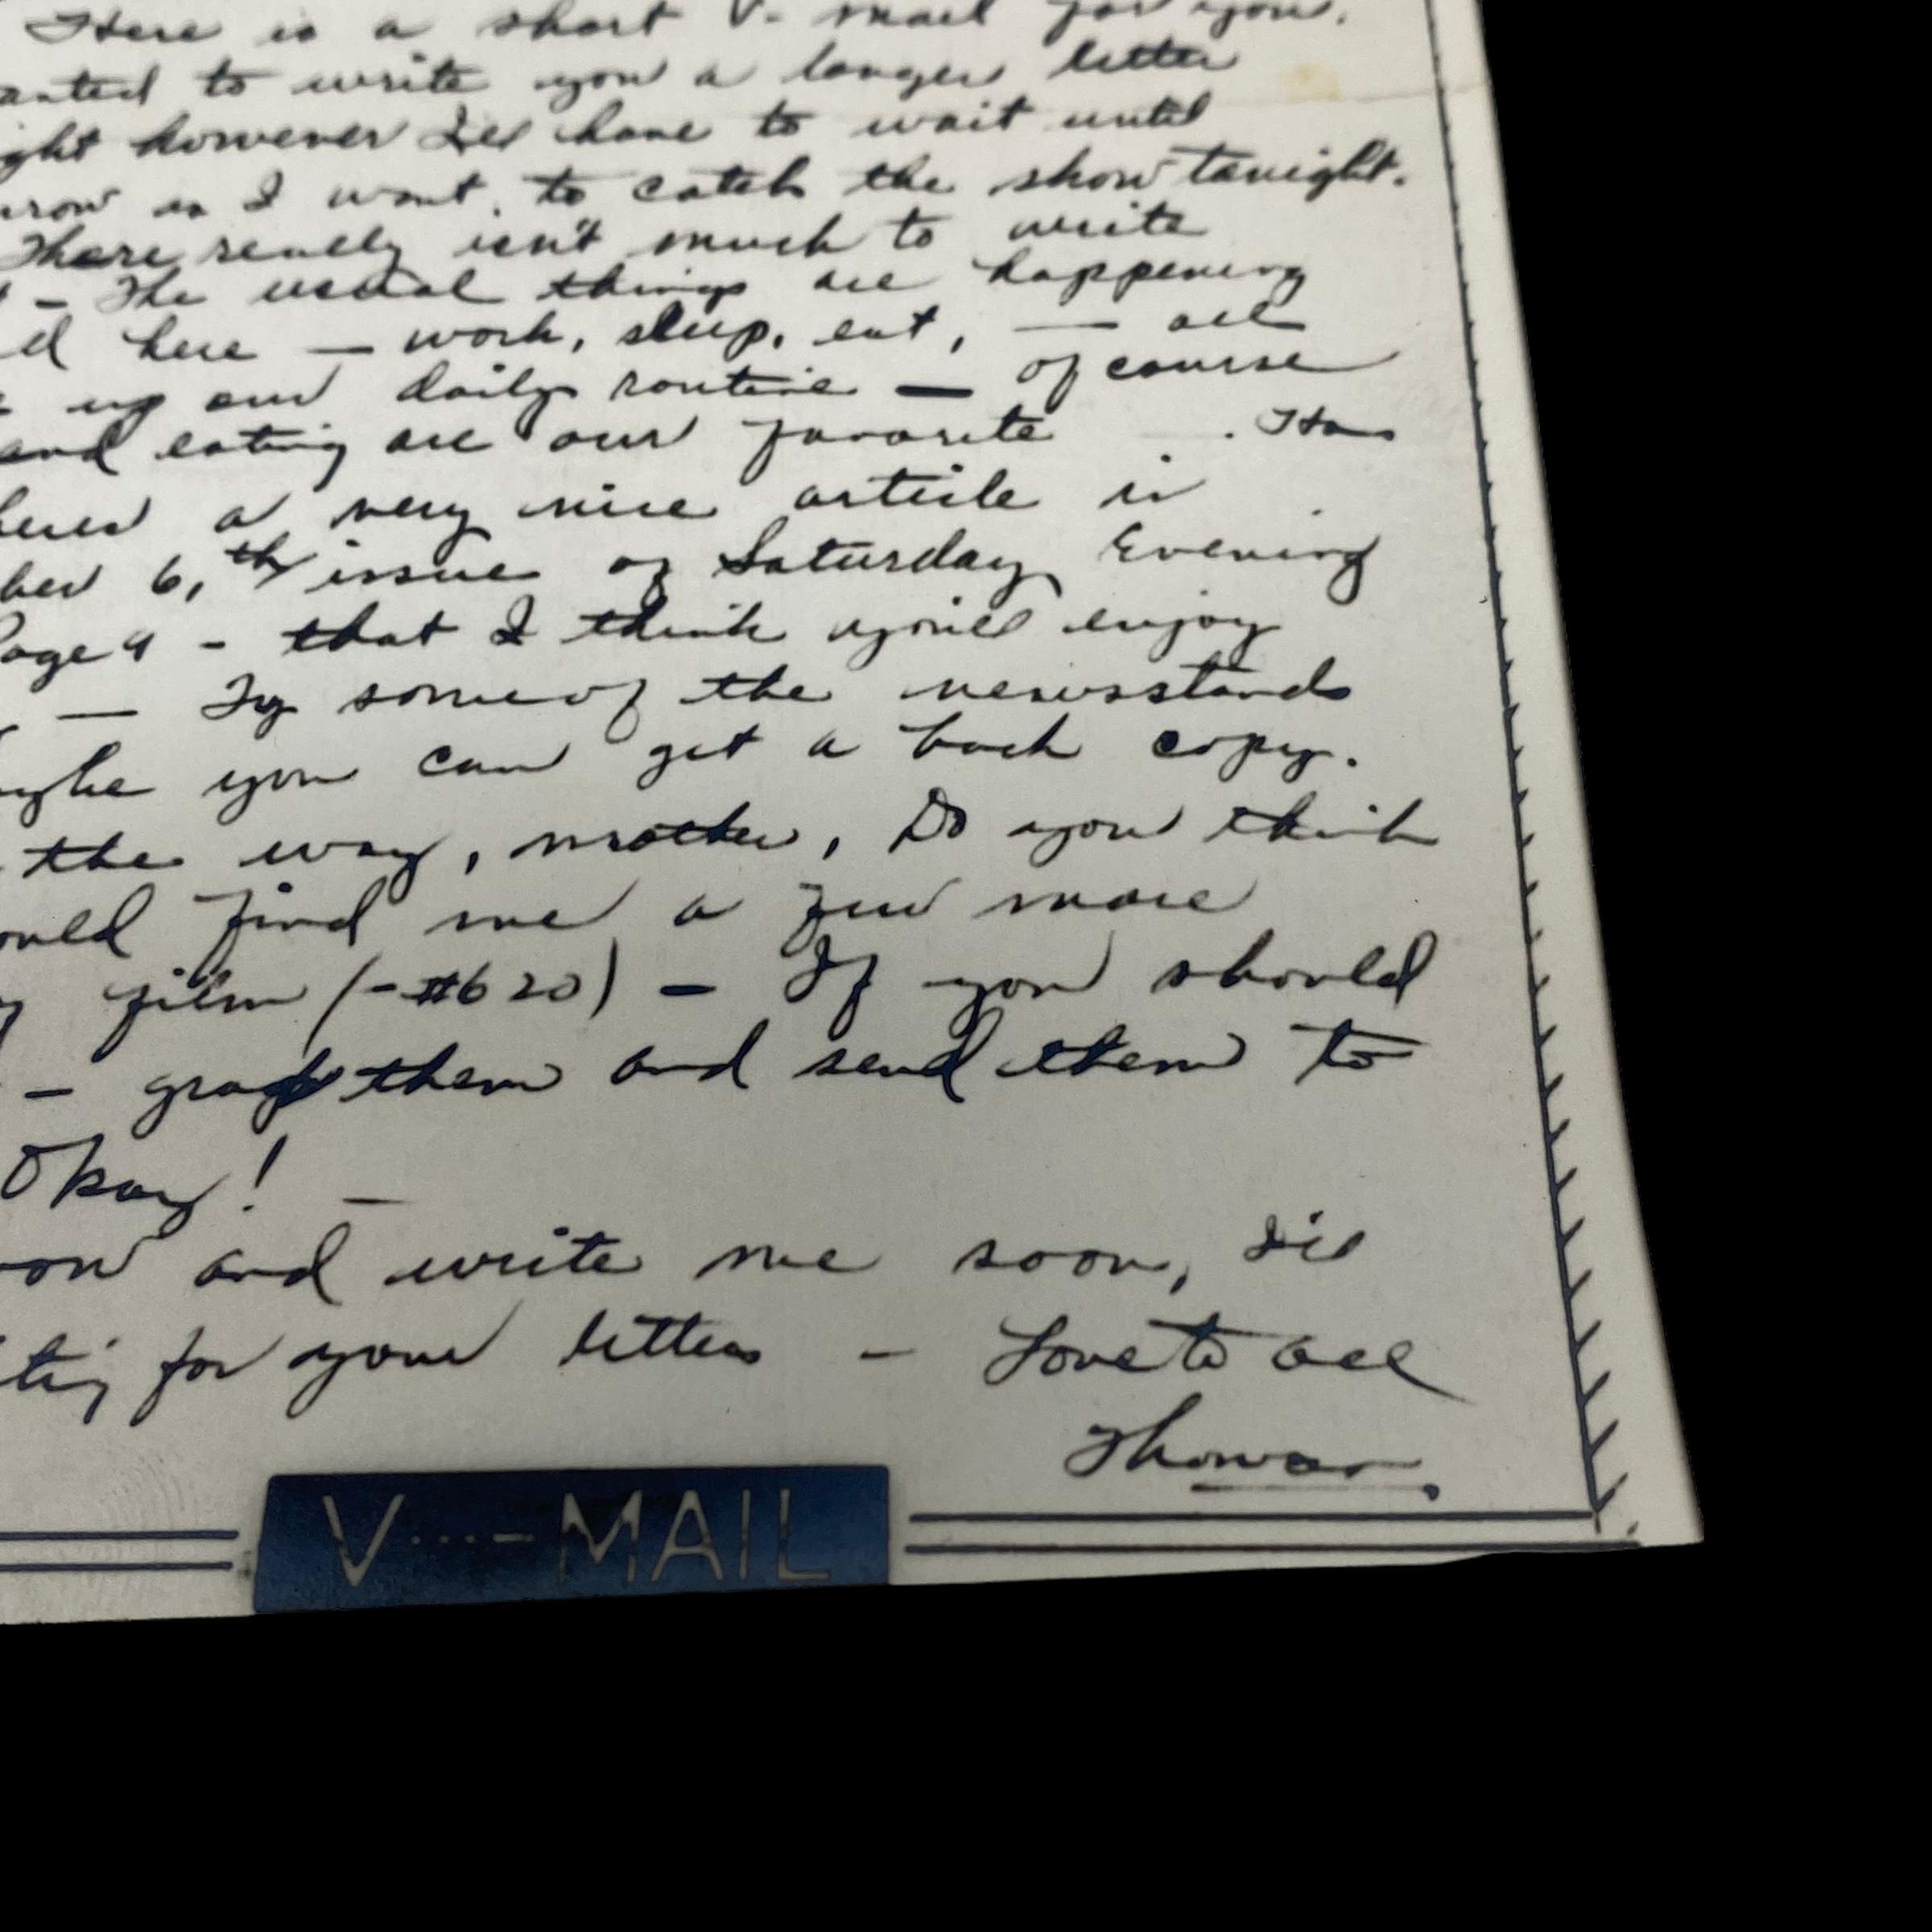 Here is a short V-mail for you.
anted to write you a longer letter
ght however I'll have to wait until
rrow as I want to catch the show tonight.
There really isn't much to write
- The usual things are happening
d here — work, sleep, eat, — all
up our daily routine — of course
and eating are our favorite
a very nice article in
ber 6,th issue of Saturday Evening
Page 9 - that I think you'll enjoy
— Try some of the newsstands
aybe you can get a back copy.
the way, mother, Do you think
ould find me a few more
film (-#620) - If you should
- grab them and send them to
Okay! -
now and write me soon, I'll
iting for your letters - Love to all
Thomas.
V···-MAIL